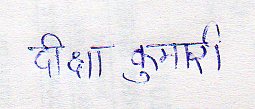 दीक्षा कुमारी